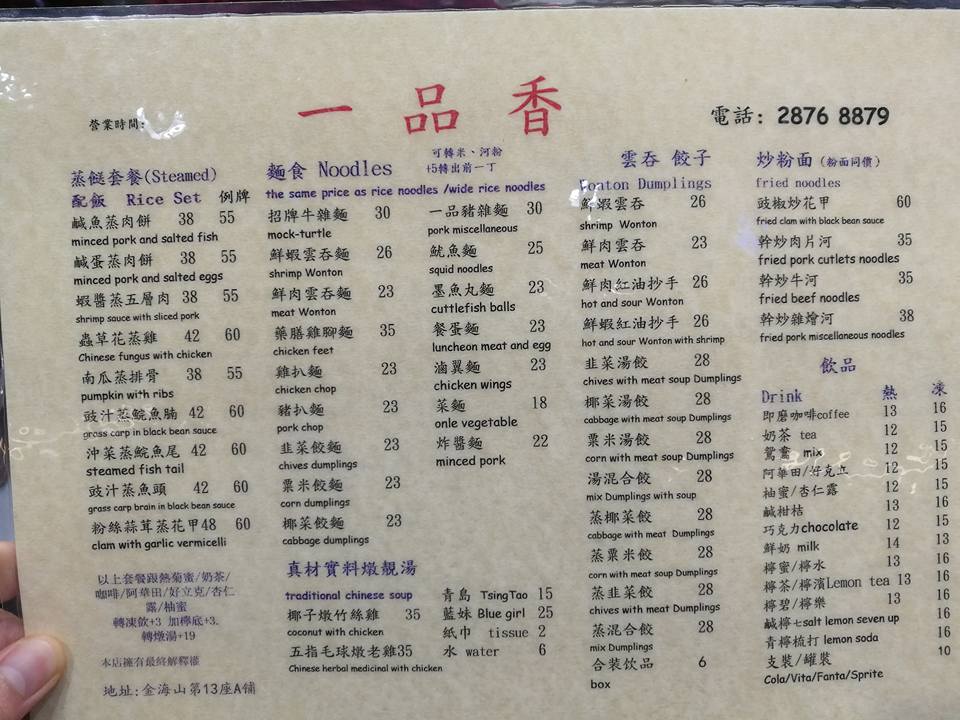 一品香
營業時間:
電話: 2876 8879
蒸餸套餐(Steamed)
配飯 Rice Set 例牌
鹹魚蒸肉餅 38 55
minced pork and salted fish
鹹蛋蒸肉餅 38 55
minced pork and salted eggs
蝦醬蒸五層肉 38 55
shrimp sauce with sliced pork
蟲草花蒸雞 42 60
Chinese fungus with chicken
南瓜蒸排骨 38 55
pumpkin with ribs
豉汁蒸鯇魚腩 42 60
grass carp in black bean sauce
沖菜蒸鯇魚尾 42 60
steamed fish tail
豉汁蒸魚頭 42 60
grass carp brain in black bean sauce
粉絲蒜茸蒸花甲48 60
clam with garlic vermicelli
以上套餐跟熱菊蜜/奶茶/
咖啡/阿華田/好立克/杏仁
露/柚蜜
轉凍飲+3 加檸底+3.
轉燉湯+19
本店擁有最終解釋權
地址:金海山第13座A舖
麵食 Noodles
可轉米、河粉
+5轉出前一丁
the same price as rice noodles /wide rice noodles
招牌牛雜麵 30
mock-turtle
鮮蝦雲吞麵 26
shrimp Wonton
鮮肉雲吞麵 23
meat Wonton
藥膳雞腳麵 35
chicken feet
雞扒麵 23
chicken chop
豬扒麵 23
pork chop
韭菜餃麵 23
chives dumplings
粟米餃麵 23
corn dumplings
椰菜餃麵 23
cabbage dumplings
一品豬雜麵 30
pork miscellaneous
魷魚麵 25
squid noodles
墨魚丸麵 23
cuttlefish balls
餐蛋麵 23
luncheon meat and egg
滷翼麵 23
chicken wings
菜麵 18
onle vegetable
炸醬麵 22
minced pork
真材實料燉靚湯
traditional chinese soup
椰子燉竹絲雞 35
coconut with chicken
五指毛球燉老雞35
Chinese herbal medicinal with chicken
青島 TsingTao 15
藍妹 Blue girl 25
紙巾 tissue 2
水 water 6
雲吞 餃子
Wonton Dumplings
鮮蝦雲吞 26
shrimp Wonton
鮮肉雲吞 23
meat Wonton
鮮肉紅油抄手 26
hot and sour Wonton
鮮蝦紅油抄手 26
hot and sour Wonton with shrimp
韭菜湯餃 28
chives with meat soup Dumplings
椰菜湯餃 28
cabbage with meat soup Dumplings
粟米湯餃 28
corn with meat soup Dumplings
湯混合餃 28
mix Dumplings with soup
蒸椰菜餃 28
cabbage with meat Dumplings
蒸粟米餃 28
corn with meat soup Dumplings
蒸韭菜餃 28
chives with meat Dumplings
蒸混合餃 28
mix Dumplings
合裝饮品 6
box
炒粉面 (粉面同價)
fried noodles
豉椒炒花甲 60
fried clam with black bean sauce
幹炒肉片河 35
fried pork cutlets noodles
幹炒牛河 35
fried beef noodles
幹炒雜燴河 38
fried pork miscellaneous noodles
飲品
Drink 熱 凍
即磨咖啡coffee 13 16
奶茶 tea 12 15
鴛鴦 mix 12 15
阿華田/好克立 12 15
柚蜜/杏仁露 12 15
鹹柑桔 13 16
巧克力chocolate 12 15
鮮奶 milk 14 13
檸蜜/檸水 13 16
檸茶/檸濱Lemon tea 13 16
檸碧/檸樂 13 16
鹹檸七salt lemon seven up 16
青檸梳打 lemon soda 16
支裝/罐裝 10
Cola/Vita/Fanta/Sprite